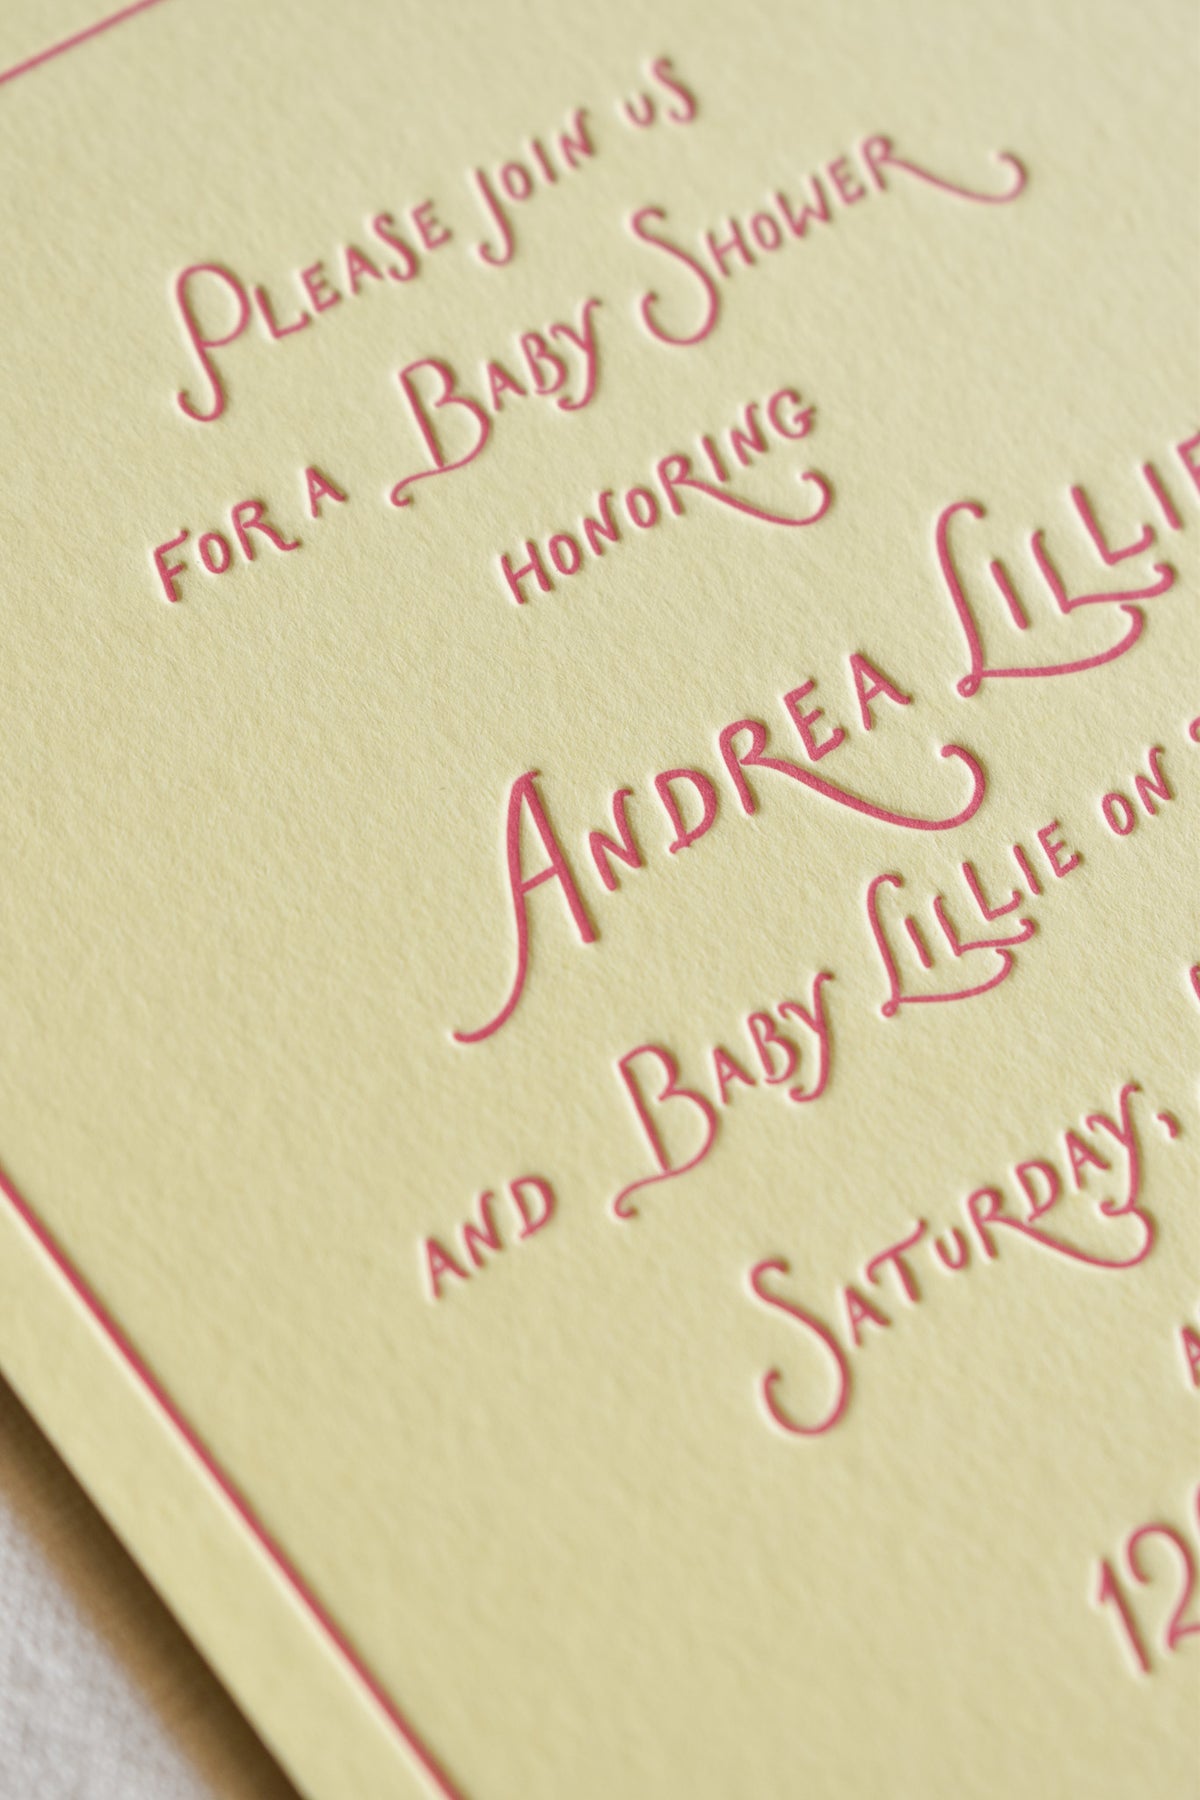 PLEASE JOIN US
FOR A BABY SHOWER
HONORING
ANDREA LILLIE
AND BABY LILLIE ON
SATURDAY,